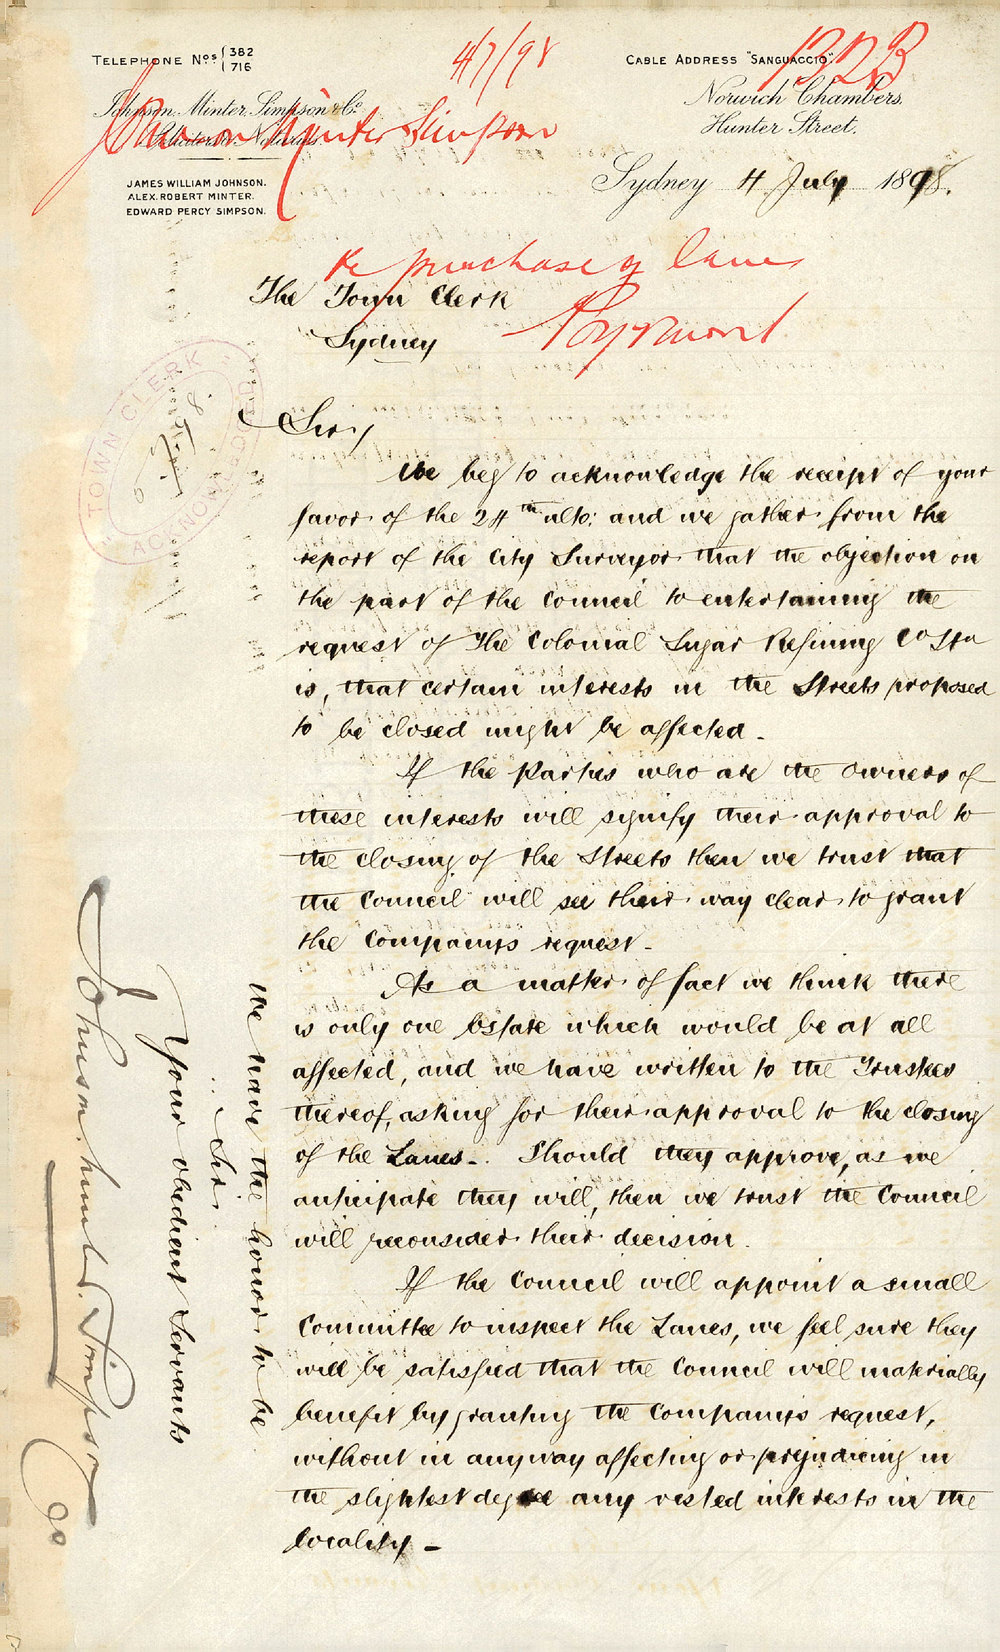 TELEPHONE Nos. { 382
716
CABLE ADDRESS "SANGUACCIO".
4/7/98
Johnson, Minter, Simpson & Co.
Solicitors & Notaries.
Johnson Minter Simpson
Norwich Chambers.
Hunter Street.
JAMES WILLIAM JOHNSON.
ALEX. ROBERT MINTER.
EDWARD PERCY SIMPSON.
Sydney 4 July 1898.
Re purchase of lanes
Pyrmont
The Town Clerk
Sydney
TOWN CLERK
ACKNOWLEDGED
Sir,
We beg to acknowledge the receipt of your
favor of the 24th ulto: and we gather from the
report of the City Surveyor that the objection on
the part of the Council to entertaining the
request of The Colonial Sugar Refining Co Ltd
is, that certain interests in the Streets proposed
to be closed might be affected.
If the Parties who are the owners of
these interests will signify their approval to
the closing of the Streets then we trust that
the Council will see their way clear to grant
the Companys request.
As a matter of fact we think there
is only one Estate which would be at all
affected, and we have written to the Trustees
thereof, asking for their approval to the closing
of the Lanes. Should they approve, as we
anticipate they will, then we trust the Council
will reconsider their decision.
If the Council will appoint a small
Committee to inspect the Lanes, we feel sure they
will be satisfied that the Council will materially
benefit by granting the Companys request,
without in anyway affecting or prejudicing in
the slightest degree any vested interests in the
locality.
We have the honor to be
Sir.
Your obedient Servants
Johnson Minter Simpson
& Co